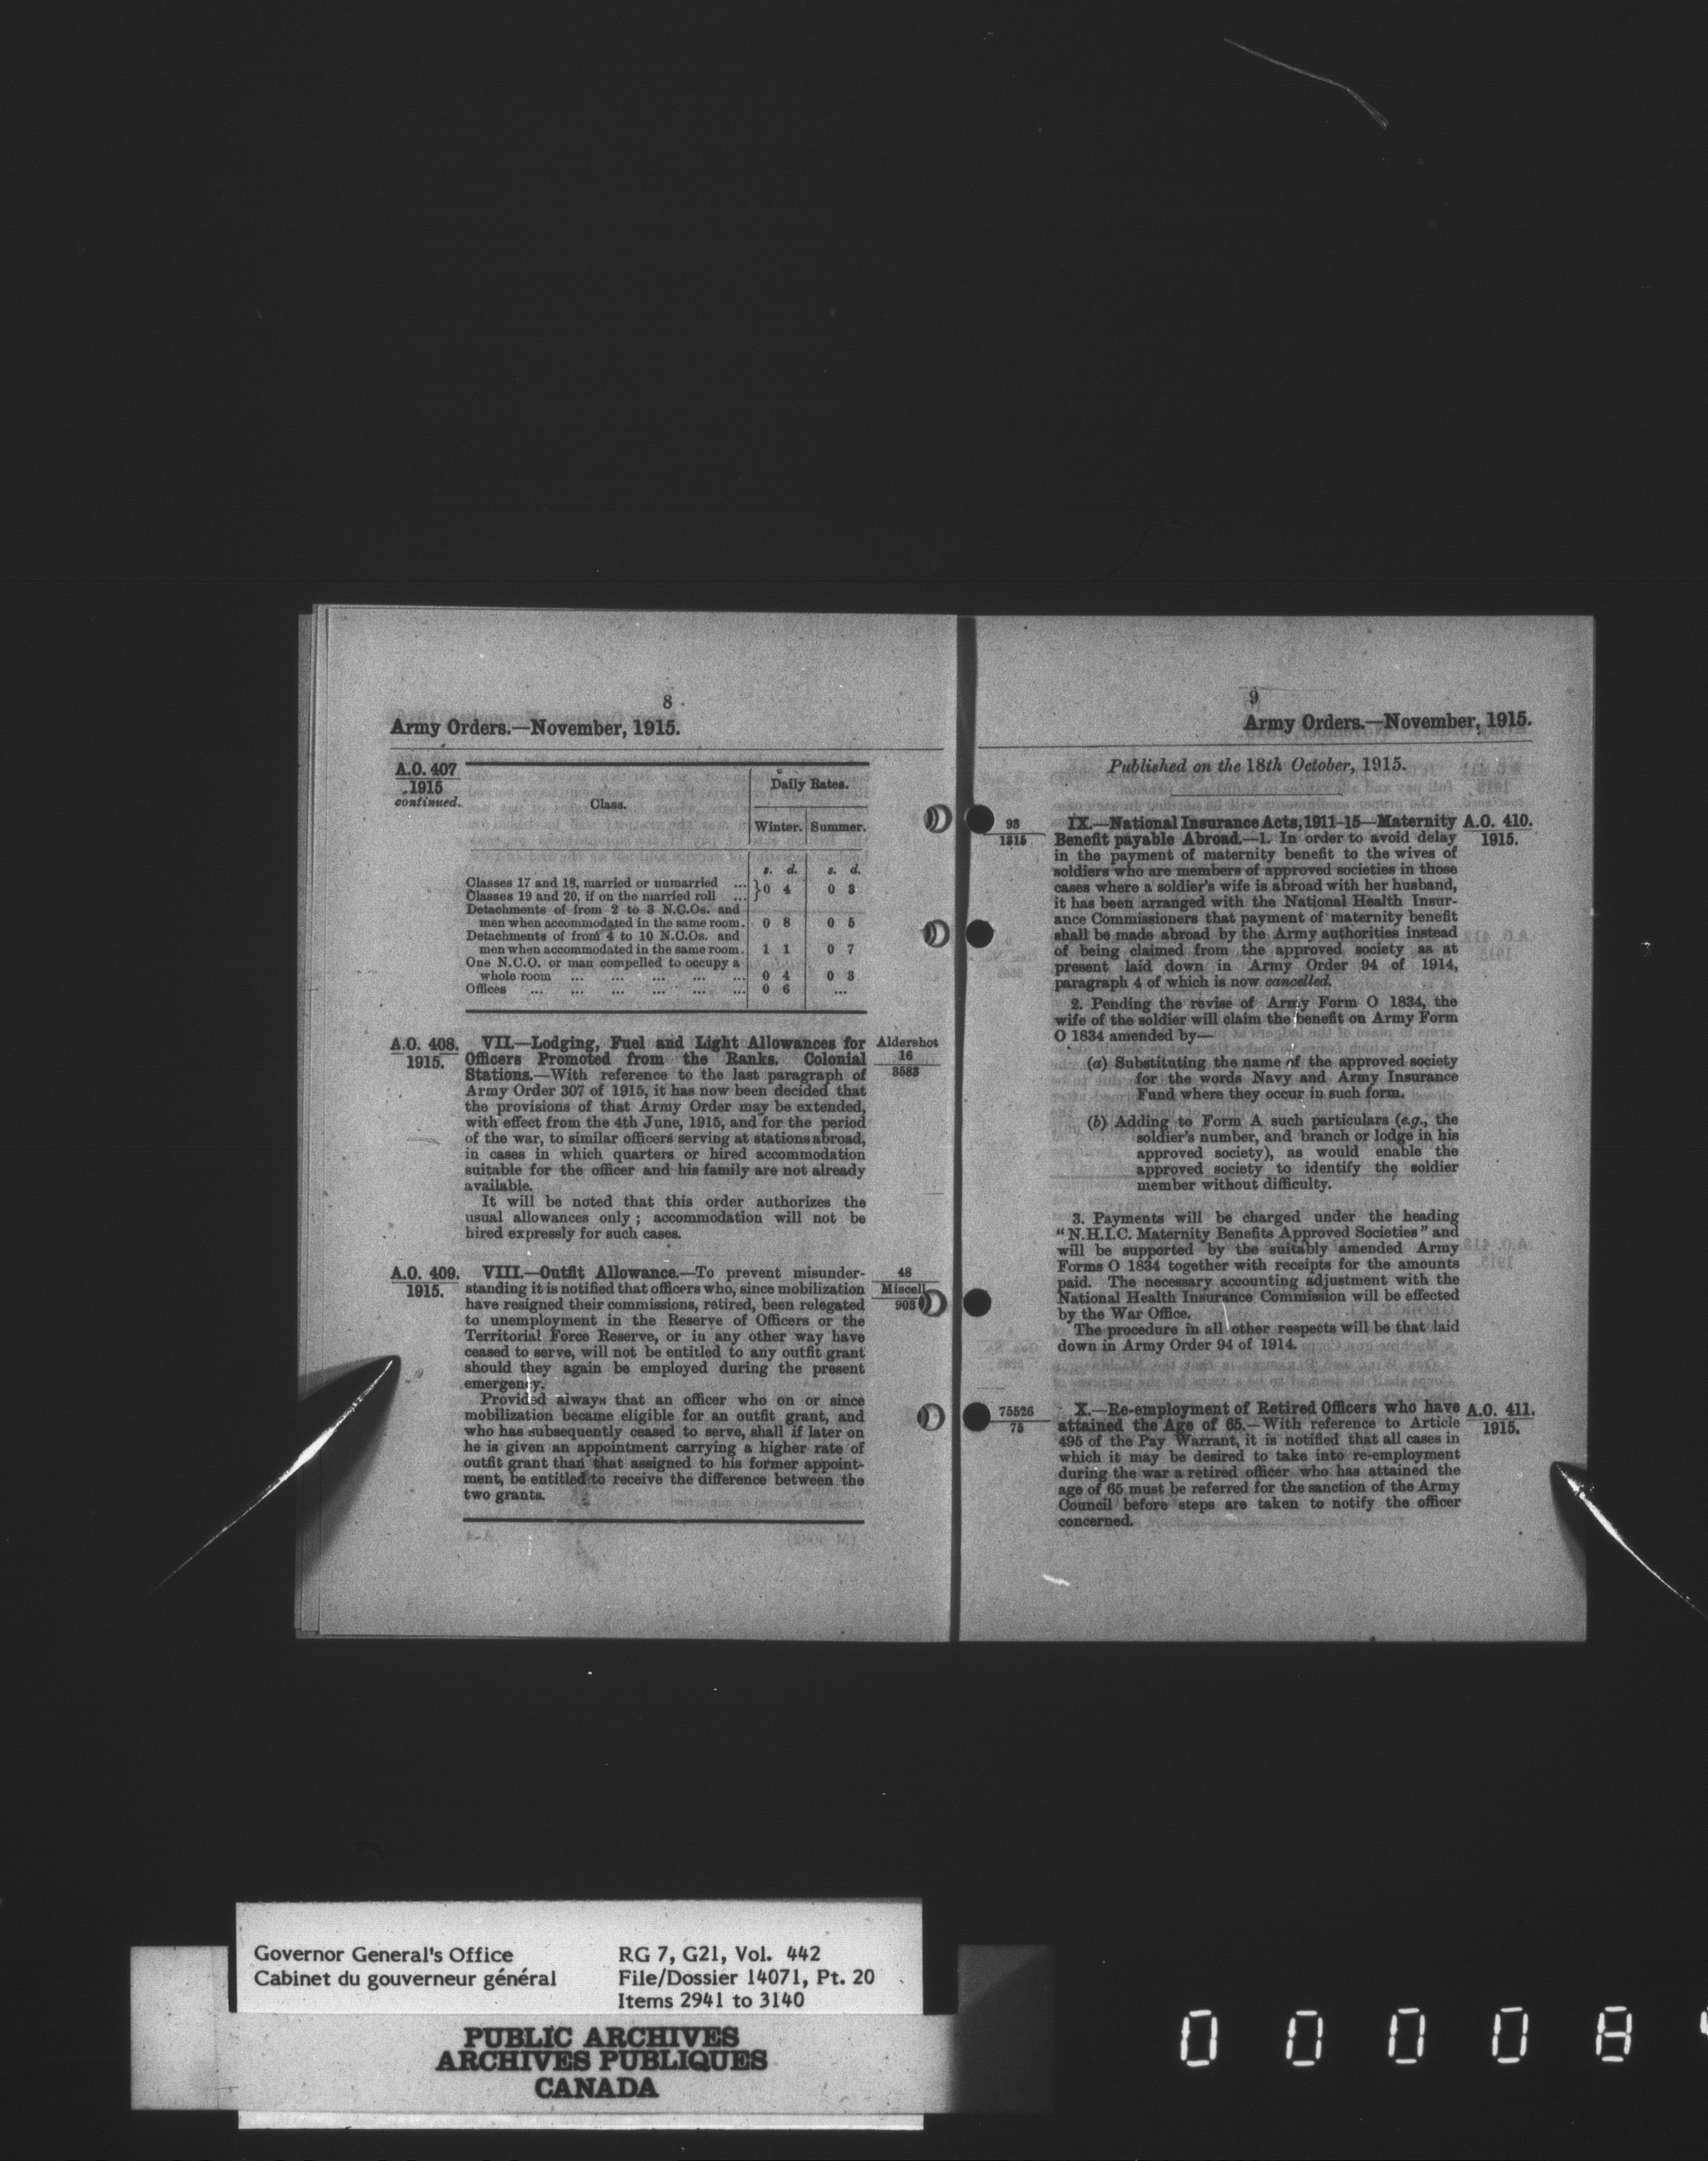 8
Army Orders.—November, 1915.
A.O. 407
1915
continued.
Class.
Daily Rates.
Winter. Summer.
s. d. s. d.
Classes 17 and 18, married or unmarried ...
Classes 19 and 20, if on the married roll ... } 0 4 0 3
Detachments of from 2 to 3 N.C.Os. and
men when accommodated in the same room. 0 8 0 5
Detachments of from 4 to 10 N.C.Os. and
men when accommodated in the same room. 1 1 0 7
One N.C.O. or man compelled to occupy a
whole room ... ... ... ... ... 0 4 0 3
Offices ... ... ... ... ... ... 0 6 ...
A.O. 408.
1915.
VII.—Lodging, Fuel and Light Allowances for
Officers Promoted from the Ranks. Colonial
Stations.—With reference to the last paragraph of
Army Order 307 of 1915, it has now been decided that
the provisions of that Army Order may be extended,
with effect from the 4th June, 1915, and for the period
of the war, to similar officers serving at stations abroad,
in cases in which quarters or hired accommodation
suitable for the officer and his family are not already
available.
It will be noted that this order authorizes the
usual allowances only; accommodation will not be
hired expressly for such cases.
Aldershot
16
3583
A.O. 409.
1915.
VIII.—Outfit Allowance.—To prevent misunder-
standing it is notified that officers who, since mobilization
have resigned their commissions, retired, been relegated
to unemployment in the Reserve of Officers or the
Territorial Force Reserve, or in any other way have
ceased to serve, will not be entitled to any outfit grant
should they again be employed during the present
emergency.
Provided always that an officer who on or since
mobilization became eligible for an outfit grant, and
who has subsequently ceased to serve, shall if later on
he is given an appointment carrying a higher rate of
outfit grant than that assigned to his former appoint-
ment, be entitled to receive the difference between the
two grants.
48
Miscell.
903
9
Army Orders.—November, 1915.
Published on the 18th October, 1915.
93
1315
IX.—National Insurance Acts, 1911-15—Maternity
Benefit payable Abroad.—1. In order to avoid delay
in the payment of maternity benefit to the wives of
soldiers who are members of approved societies in those
cases where a soldier's wife is abroad with her husband,
it has been arranged with the National Health Insur-
ance Commissioners that payment of maternity benefit
shall be made abroad by the Army authorities instead
of being claimed from the approved society as at
present laid down in Army Order 94 of 1914,
paragraph 4 of which is now cancelled.
A.O. 410.
1915.
2. Pending the revise of Army Form O 1834, the
wife of the soldier will claim the benefit on Army Form
O 1834 amended by—
(a) Substituting the name of the approved society
for the words Navy and Army Insurance
Fund where they occur in such form.
(b) Adding to Form A such particulars (e.g., the
soldier's number, and branch or lodge in his
approved society), as would enable the
approved society to identify the soldier
member without difficulty.
3. Payments will be charged under the heading
"N.H.I.C. Maternity Benefits Approved Societies" and
will be supported by the suitably amended Army
Forms O 1834 together with receipts for the amounts
paid. The necessary accounting adjustment with the
National Health Insurance Commission will be effected
by the War Office.
The procedure in all other respects will be that laid
down in Army Order 94 of 1914.
75526
75
X.—Re-employment of Retired Officers who have
attained the Age of 65.—With reference to Article
495 of the Pay Warrant, it is notified that all cases in
which it may be desired to take into re-employment
during the war a retired officer who has attained the
age of 65 must be referred for the sanction of the Army
Council before steps are taken to notify the officer
concerned.
A.O. 411.
1915.
Governor General's Office
Cabinet du gouverneur général
RG 7, G21, Vol. 442
File/Dossier 14071, Pt. 20
Items 2941 to 3140
PUBLIC ARCHIVES
ARCHIVES PUBLIQUES
CANADA
00008